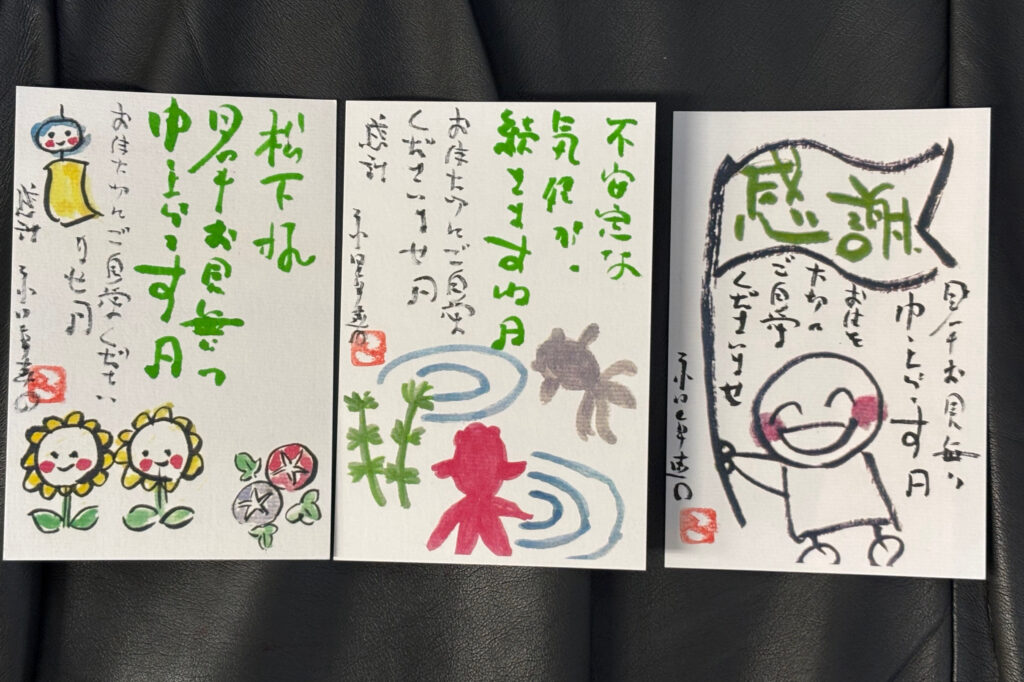 松下様
暑中お見舞い
申し上げます
お体大切にご自愛くださ​い
ませ
感謝
不安定な
気候が、
続きますね
お体大切にご自愛
くださいませ
感謝
感謝
暑中お見舞い
申し上げます
お体を
大切に
ご自愛
くださいませ